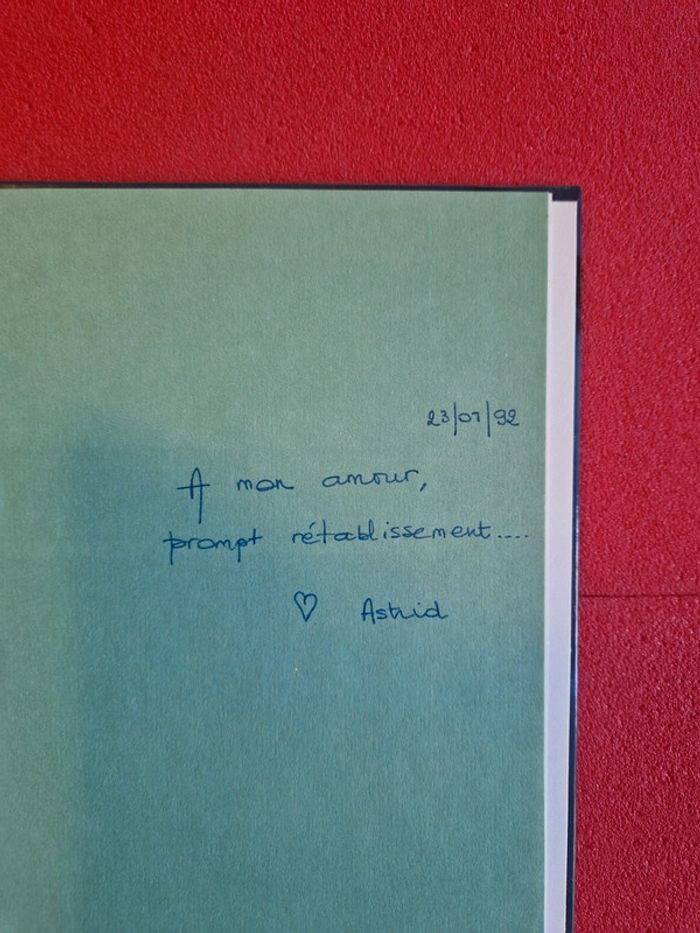 23/07/92
A mon amour,
prompt rétablissement....
♡ Astrid